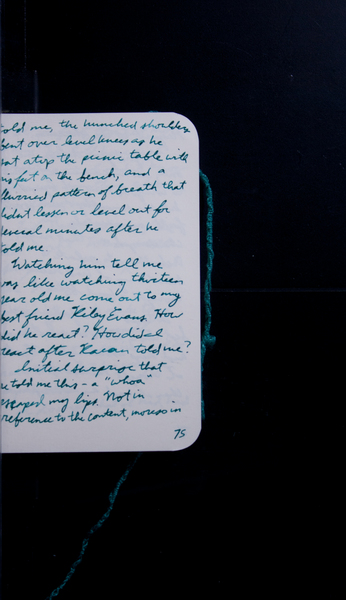 told me, the hunched shoulders
bent over level knees as he
sat atop the picnic table with
his feet on the bench, and a
flurried pattern of breath that
didnt lessen or level out for
several minutes after he
told me.
Watching him tell me
was like watching thirteen
year old me come out to my
best friend Kiley Evans. How
did he react? How did I
react after told me?
Initial surprise that
he told me this - a "whoa"
escaped my lips. Not in
reference to the content, moreso in
75